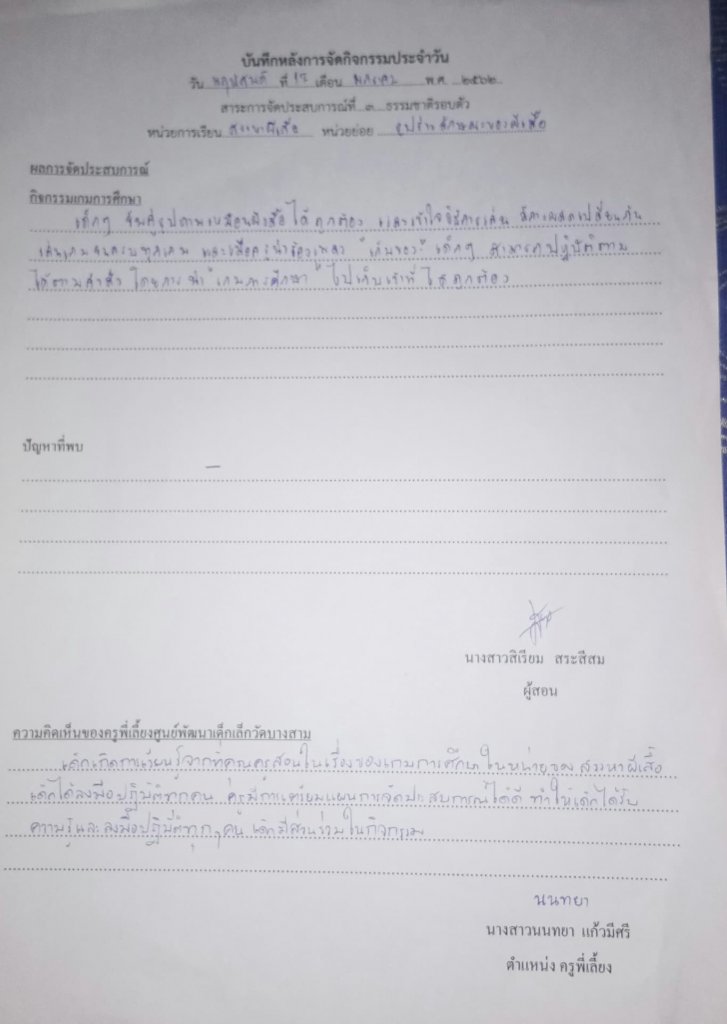 บันทึกหลังการจัดกิจกรรมประจำวัน
วัน พฤหัสบดี ที่ ๑๗ เดือน มกราคม พ.ศ. ๒๕๖๒
สาระการจัดประสบการณ์ที่ ๓ ธรรมชาติรอบตัว
หน่วยการเรียน สรรหาผีเสื้อ หน่วยย่อย รูปร่างลักษณะของผีเสื้อ
ผลการจัดประสบการณ์
กิจกรรมเกมการศึกษา
เด็กๆ จับคู่รูปภาพเหมือนผีเสื้อได้ถูกต้อง และเข้าใจวิธีการเล่น มีการผลัดเปลี่ยนกัน
เล่นเกมจนครบทุกเกม และเมื่อครูนำร้องเพลง "เก็บของ" เด็กๆ สามารถปฏิบัติตาม
ได้ตามคำสั่ง โดยการนำ "เกมการศึกษา" ไปเก็บเข้าที่ได้ถูกต้อง
ปัญหาที่พบ
–
นางสาวสิเรียม สระสีสม
ผู้สอน
ความคิดเห็นของครูพี่เลี้ยงศูนย์พัฒนาเด็กเล็กวัดบางสาม
เด็กเกิดการเรียนรู้จากที่คุณครูสอนในเรื่องของเกมการศึกษาในหน่วยของ สรรหาผีเสื้อ
เด็กได้ลงมือปฏิบัติทุกคน ครูมีการเตรียมแผนการจัดประสบการณ์ได้ดี ทำให้เด็กได้รับ
ความรู้และลงมือปฏิบัติทุกๆคน เด็กมีส่วนร่วมในกิจกรรม
นนทยา
นางสาวนนทยา แก้วมีศรี
ตำแหน่ง ครูพี่เลี้ยง